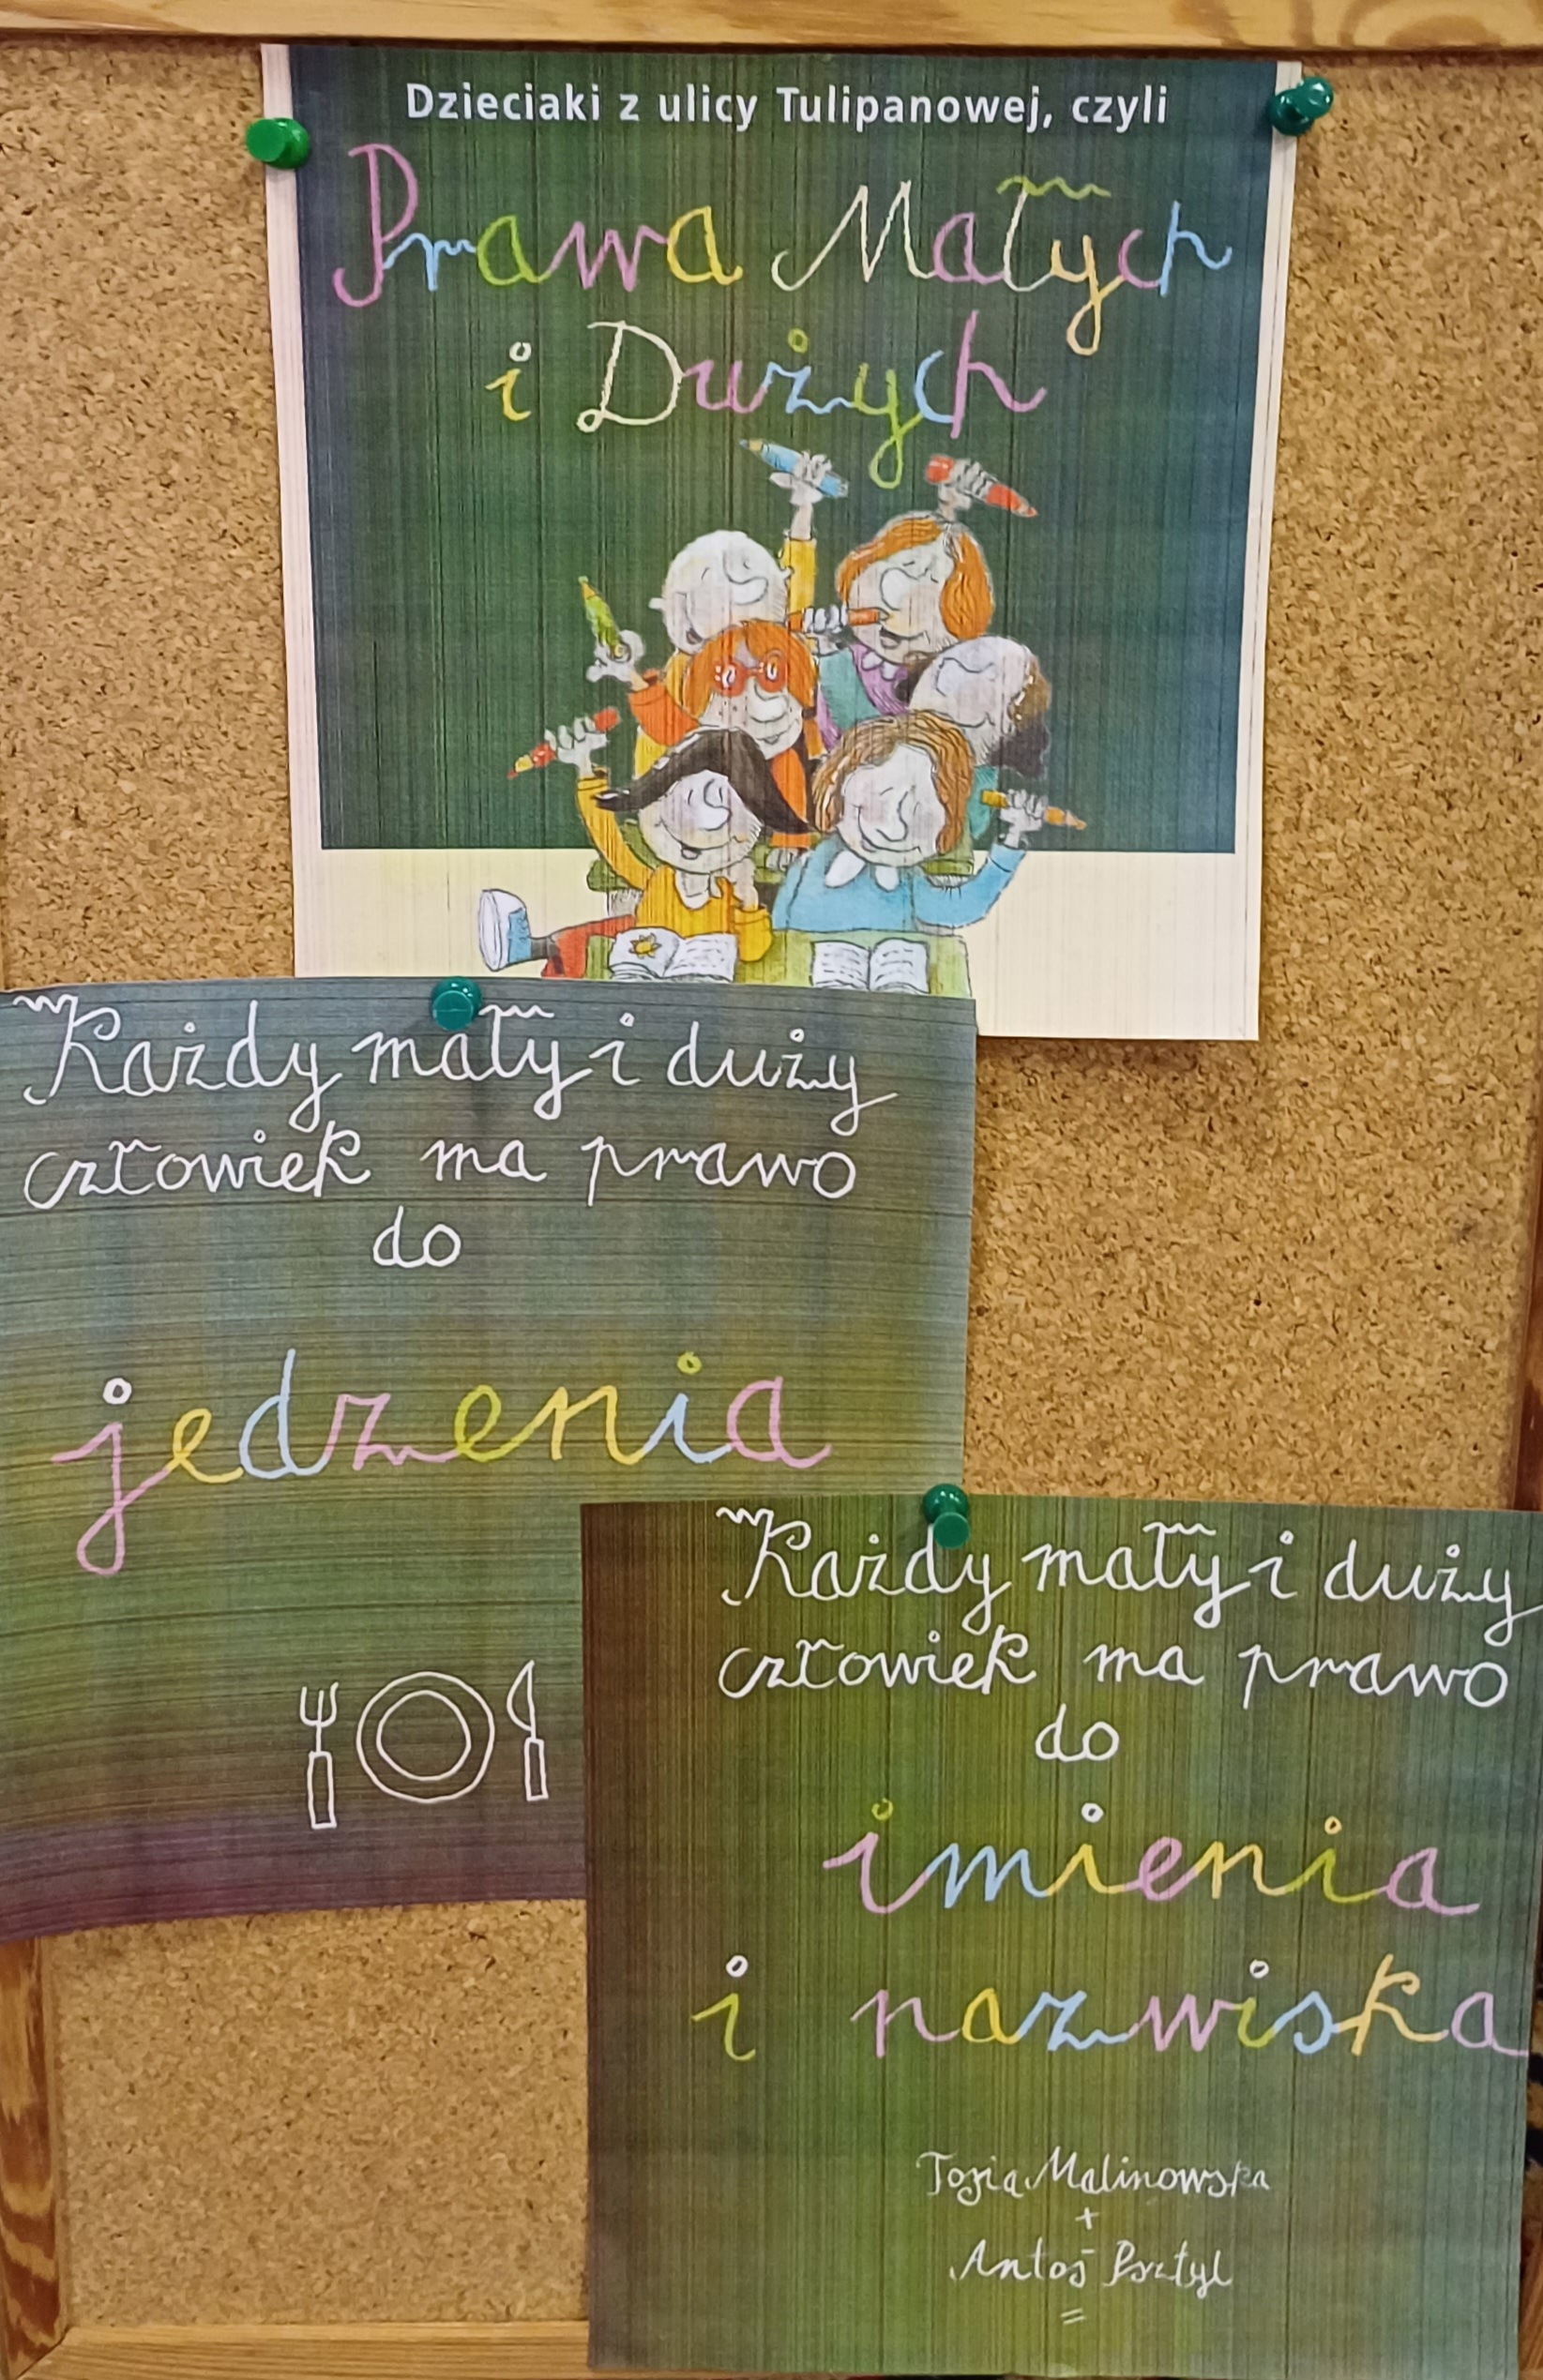 Dzieciaki z ulicy Tulipanowej, czyli
Prawa Małych
i Dużych
Każdy mały i duży
człowiek ma prawo
do
jedzenia
Każdy mały i duży
człowiek ma prawo
do
imienia
i nazwiska
Tosia Malinowska
+
Antoś
=